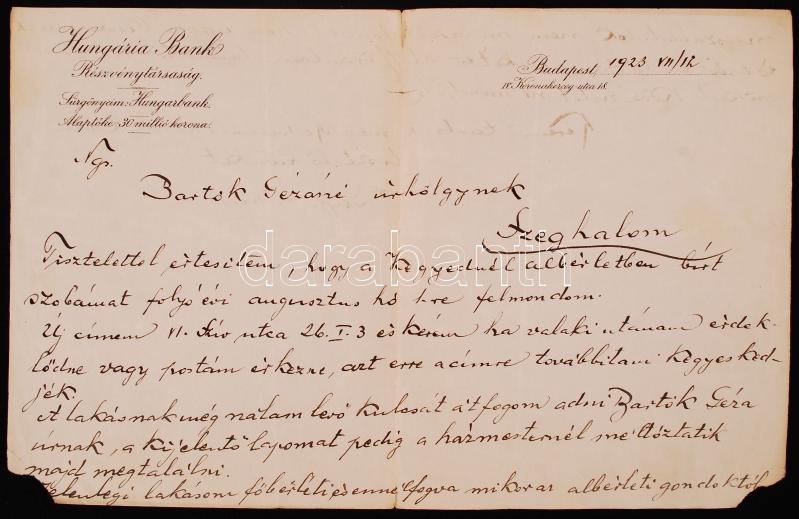 Hungária Bank
Részvénytársaság.
Sürgönycím: Hungarbank.
Alaptőke: 30 millió korona.
Budapest, 1923 VII/12
IV. Koronaherceg-utca 18.
Ngs.
Bartók Gézáné úrhölgynek
Szeghalom
Tisztelettel értesitem, hogy a Kegyednél albérletben birt
szobámat folyó évi augusztus hó 1-re felmondom.
Új cimem VI. Szív utca 26. I. 3 és kérem ha valaki utánam érdek-
lődne vagy postám érkezne, azt erre a cimre továbbitani kegyesked-
jék.
A lakásnak még nálam levő kulcsát át fogom adni Bartók Géza
úrnak, a kijelentő lapomat pedig a házmesternél méltóztatik
majd megtalálni.
Jelenlegi lakásom főbérleti és ennélfogva mikor az albérleti gondoktól
darabanth.com